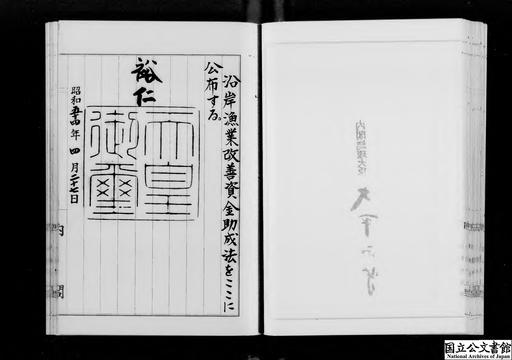 沿岸漁業改善資金助成法をここに
公布する。
裕仁
天皇御璽
昭和五十四年四月二十七日
内閣
内閣総理大臣
国立公文書館
National Archives of Japan